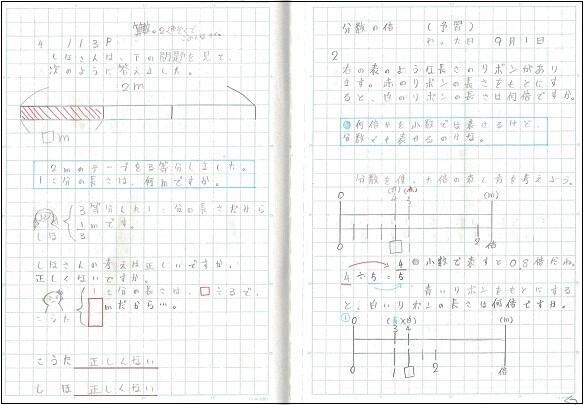 4 113P
しほさんは、下の問題を見て、
次のように答えました。
2m
□m
2mのテープを3等分しました。
1こ分の長さは、何mですか。
3等分した1こ分の長さだから
1/3 mです。
しほ
しほさんの考えは正しいですか。
正しくないですか。
1こ分の長さは、□÷3で、
□mだから…。
こうた
こうた 正しくない
しほ 正しくない
分数の倍 (予習)
やった日 9月1日
2
右の表のような長さのリボンがあり
ます。赤のリボンの長さをもとにす
ると、白のリボンの長さは何倍ですか。
分数を使った倍の表し方を考えよう。
0 4 (m)
0 □ 2 倍
4÷5=4/5
小数で表すと0.8倍だね。
青いリボンをもとにする
と、白いリボンの長さは何倍ですか。
①
0 3 4 (m)
0 1 □ 2 倍